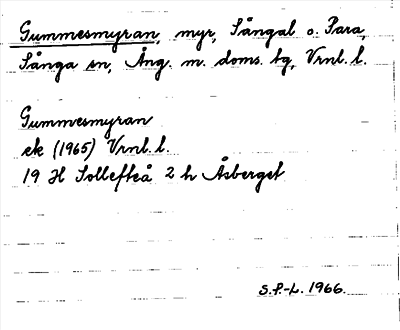 Gummesmyran, myr, Sångal o. Para,
Sånga sn, Ång. m. doms. tg, Vrnl. l.
Gummesmyran
ek (1965) Vrnl. l.
19 H Sollefteå 2 h Åsberget
S.P.-L. 1966.